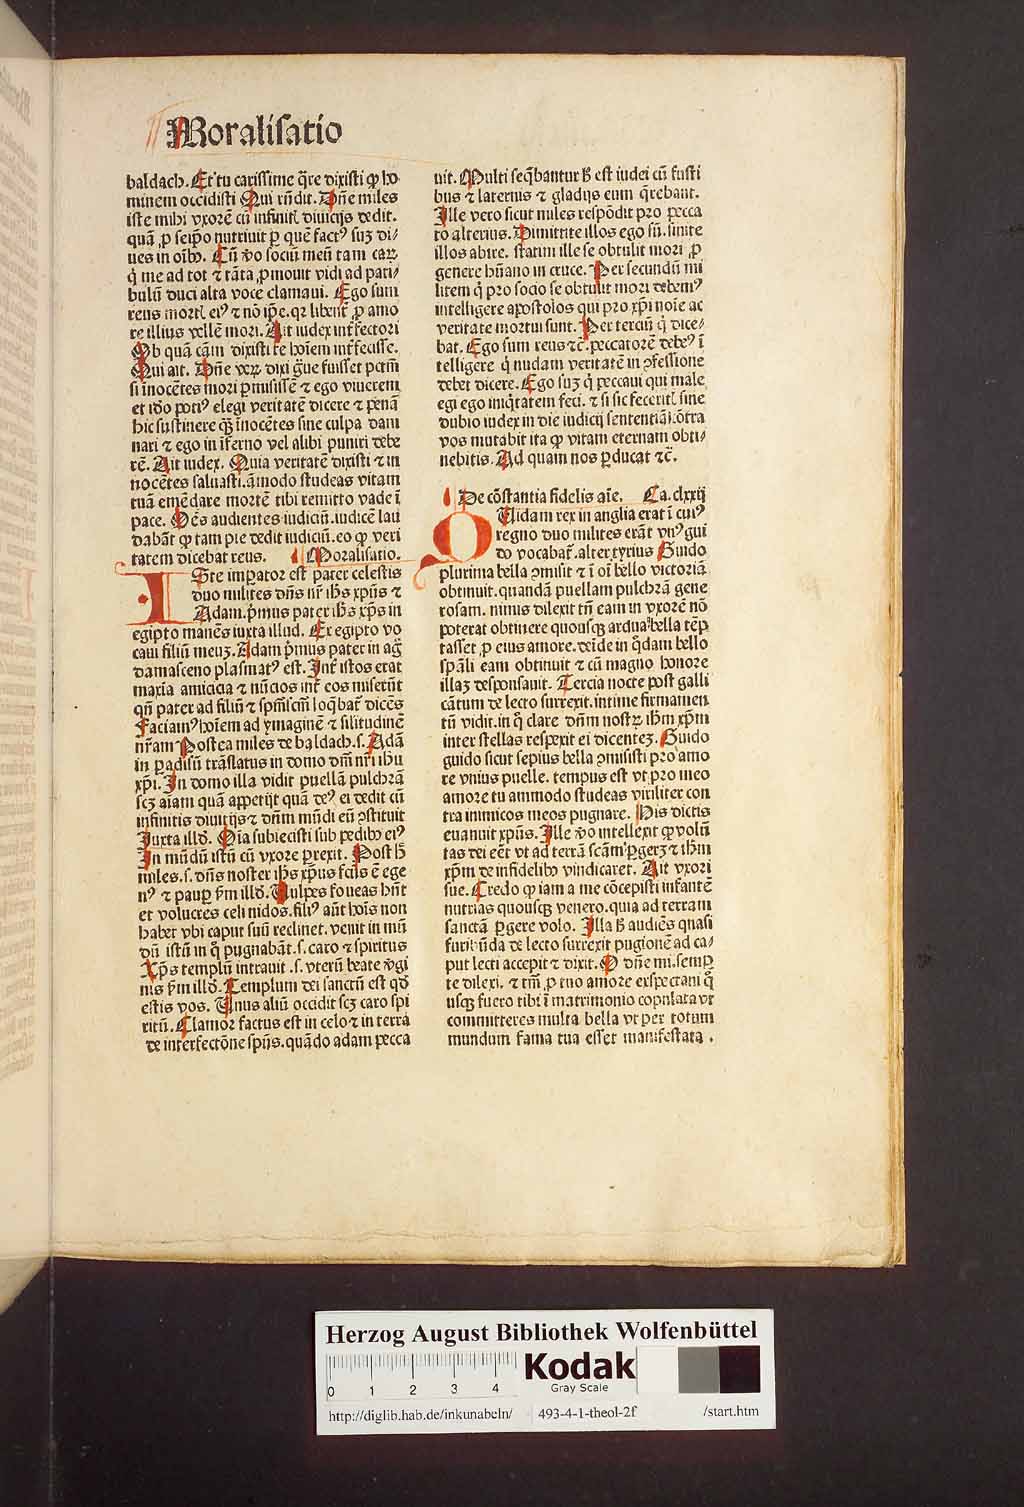 Moralisatio
baldach. Et tu carissime q̄re dixisti ꝙ ho
minem occidisti Qui rn̄dit. Dn̄e miles
iste mihi vxorē cū infinitꝭ diuicijs dedit.
quā ꝓ seip̄o nutriuit ꝑ quē factꝰ suꝫ di⸗
ues in oībꝰ. Cū v̄o sociū meū tam carꝝ
q̇ me ad tot ⁊ tāta ꝓmouit vidi ad pati⸗
bulū duci alta voce clamaui. Ego sum
reus mortꝭ eiꝰ ⁊ nō ip̄e. qꝛ libent̄ ꝓ amo
re illius vellē mori. Ait iudex int̄fectori
Ob quā cām dixisti te hoīem int̄fecisse.
Qui ait. Dn̄e veꝝ dixi g̈ue fuisset pctm̄
si inocētes mori ꝑmisissē ⁊ ego viuerem
et iō potiꝰ elegi veritatē dicere ⁊ penā
hic sustinere qꝫ inocētes sine culpa dam
nari ⁊ ego in īferno vel alibi puniri debe
rē. Ait iudex. Quia veritatē dixisti ⁊ in
nocētes saluasti. āmodo studeas vitam
tuā emēdare mortē tibi remitto vade ī
pace. Oēs audientes iudiciū. iudicē lau
dabāt ꝙ tam pie dedit iudiciū. eo ꝙ veri
tatem dicebat reus. Moralisatio.
ISte imꝑator est pater celestis
duo milites dn̄s nr̄ ih̄s xp̄us ⁊
Adam. p̄mus pater ih̄s xp̄s in
egipto manēs iuxta illud. Ex egipto vo
caui filiū meuꝫ. Adam p̄mus pater in ag̈
damasceno plasmatꝰ est. Int̄ istos erat
maxīa amicicia ⁊ nūcios int̄ eos miserūt
qn̄ pater ad filiū ⁊ sp̄m sc̄m loq̄bat̄ dicēs
Faciamꝰ hoīem ad ymaginē ⁊ silitudinē
nr̄am Postea miles de baldach. s. Adā
in ꝑadisū trāslatus in domo dn̄i nr̄i ih̄u
xp̄i. In domo illa vidit puellā pulchrā
scꝫ aīam quā appetijt quā deꝰ ei dedit cū
infinitis diuitijs ⁊ dn̄m mūdi eū ↄstituit
Iuxta illđ. Oīa subiecisti sub pedibꝰ eiꝰ
In mūdū istū cū vxore ꝑrexit. Post h̄
miles. s. dn̄s noster ih̄s xp̄us fcūs ē ege
nꝰ ⁊ pauꝑ v̄m illđ. Vulpes foueas hn̄t
et volucres celi nidos. filiꝰ aūt hoīs non
habet vbi caput suū reclinet. venit in mū
dū istū in q̊ pugnabāt. s. caro ⁊ spiritus
Xp̄s templū intrauit. s. vterū beate v̄gi
nis v̄m illđ. Templum dei sanctū est qđ
estis vos. Vnus aliū occidit scꝫ caro spi
ritū. Clamor factus est in celo ⁊ in terra
de interfectōne sp̄us. quādo adam pecca
uit. Multi seq̄bantur h̄ est iudei cū fusti
bus ⁊ laternis ⁊ gladijs eum q̄rebant.
Ille vero sicut miles respōdit pro pecca
to alterius. Dimittite illos ego sū. sinite
illos abire. statim ille se obtulit mori ꝓ
genere hūano in cruce. Per secundū mi
litem q̇ pro socio se obtulit mori debemꝰ
intelligere apostolos qui pro xp̄i noīe ac
veritate mortui sunt. Per terciū q̇ dice⸗
bat. Ego sum reus ⁊c̄. peccatorē debeꝰ ī
telligere q̇ nudam veritatē in ↄfessione
debet dicere. Ego suꝫ q̇ peccaui qui male
egi ego iniq̇tatem feci. ⁊ si sic feceritꝭ sine
dubio iudex in die iudicij sententiā ↄ̄tra
vos mutabit ita ꝙ vitam eternam obti⸗
nebitis. Ad quam nos ꝑducat ⁊c̄.
De cōstantia fidelis aīe. Ca. clxxij
QVidam rex in anglia erat ī cuiꝰ
regno duo milites erāt vnꝰ gui
do vocabat̄. alter tyrius Guido
plurima bella ↄmisit ⁊ ī oī bello victoriā
obtinuit. quandā puellam pulchrā gene
rosam. nimis dilexit tn̄ eam in vxorē nō
poterat obtinere quousqꝫ ardua bella tēp
tasset ꝓ eius amore. deīde in q̄dam bello
sp̄ali eam obtinuit ⁊ cū magno honore
illaꝫ desponsauit. Tercia nocte post galli
cātum de lecto surrexit. intime firmamen
tū vidit. in q̊ clare dn̄m nostꝝ ih̄m xp̄m
inter stellas respexit ei dicenteꝫ. Guido
guido sicut sepius bella ↄmisisti pro amo
re vnius puelle. tempus est vt pro meo
amore tu ammodo studeas viriliter con
tra inimicos meos pugnare. His dictis
euanuit xp̄us. Ille v̄o intellexit ꝙ volū
tas dei eēt vt ad terrā scām ꝑgerꝫ ⁊ ih̄m
xp̄m de infidelibꝰ vindicaret. Ait vxori
sue. Credo ꝙ iam a me cōcepisti infantē
nutrias quousqꝫ venero. quia ad terram
sanctā ꝑgere volo. Illa h̄ audiēs quasi
furibūda de lecto surrexit pugionē ad ca⸗
put lecti accepit ⁊ dixit. O dn̄e mi. semꝑ
te dilexi. ⁊ tm̄ ꝓ tuo amore exspectani q̊
usqꝫ fuero tibi ī matrimonio copulata vt
committeres multa bella vt per totum
mundum fama tua esset manifestata.
Herzog August Bibliothek Wolfenbüttel
0 1 2 3 4
Kodak
Gray Scale
http://diglib.hab.de/inkunabeln/ 493-4-1-theol-2f /start.htm